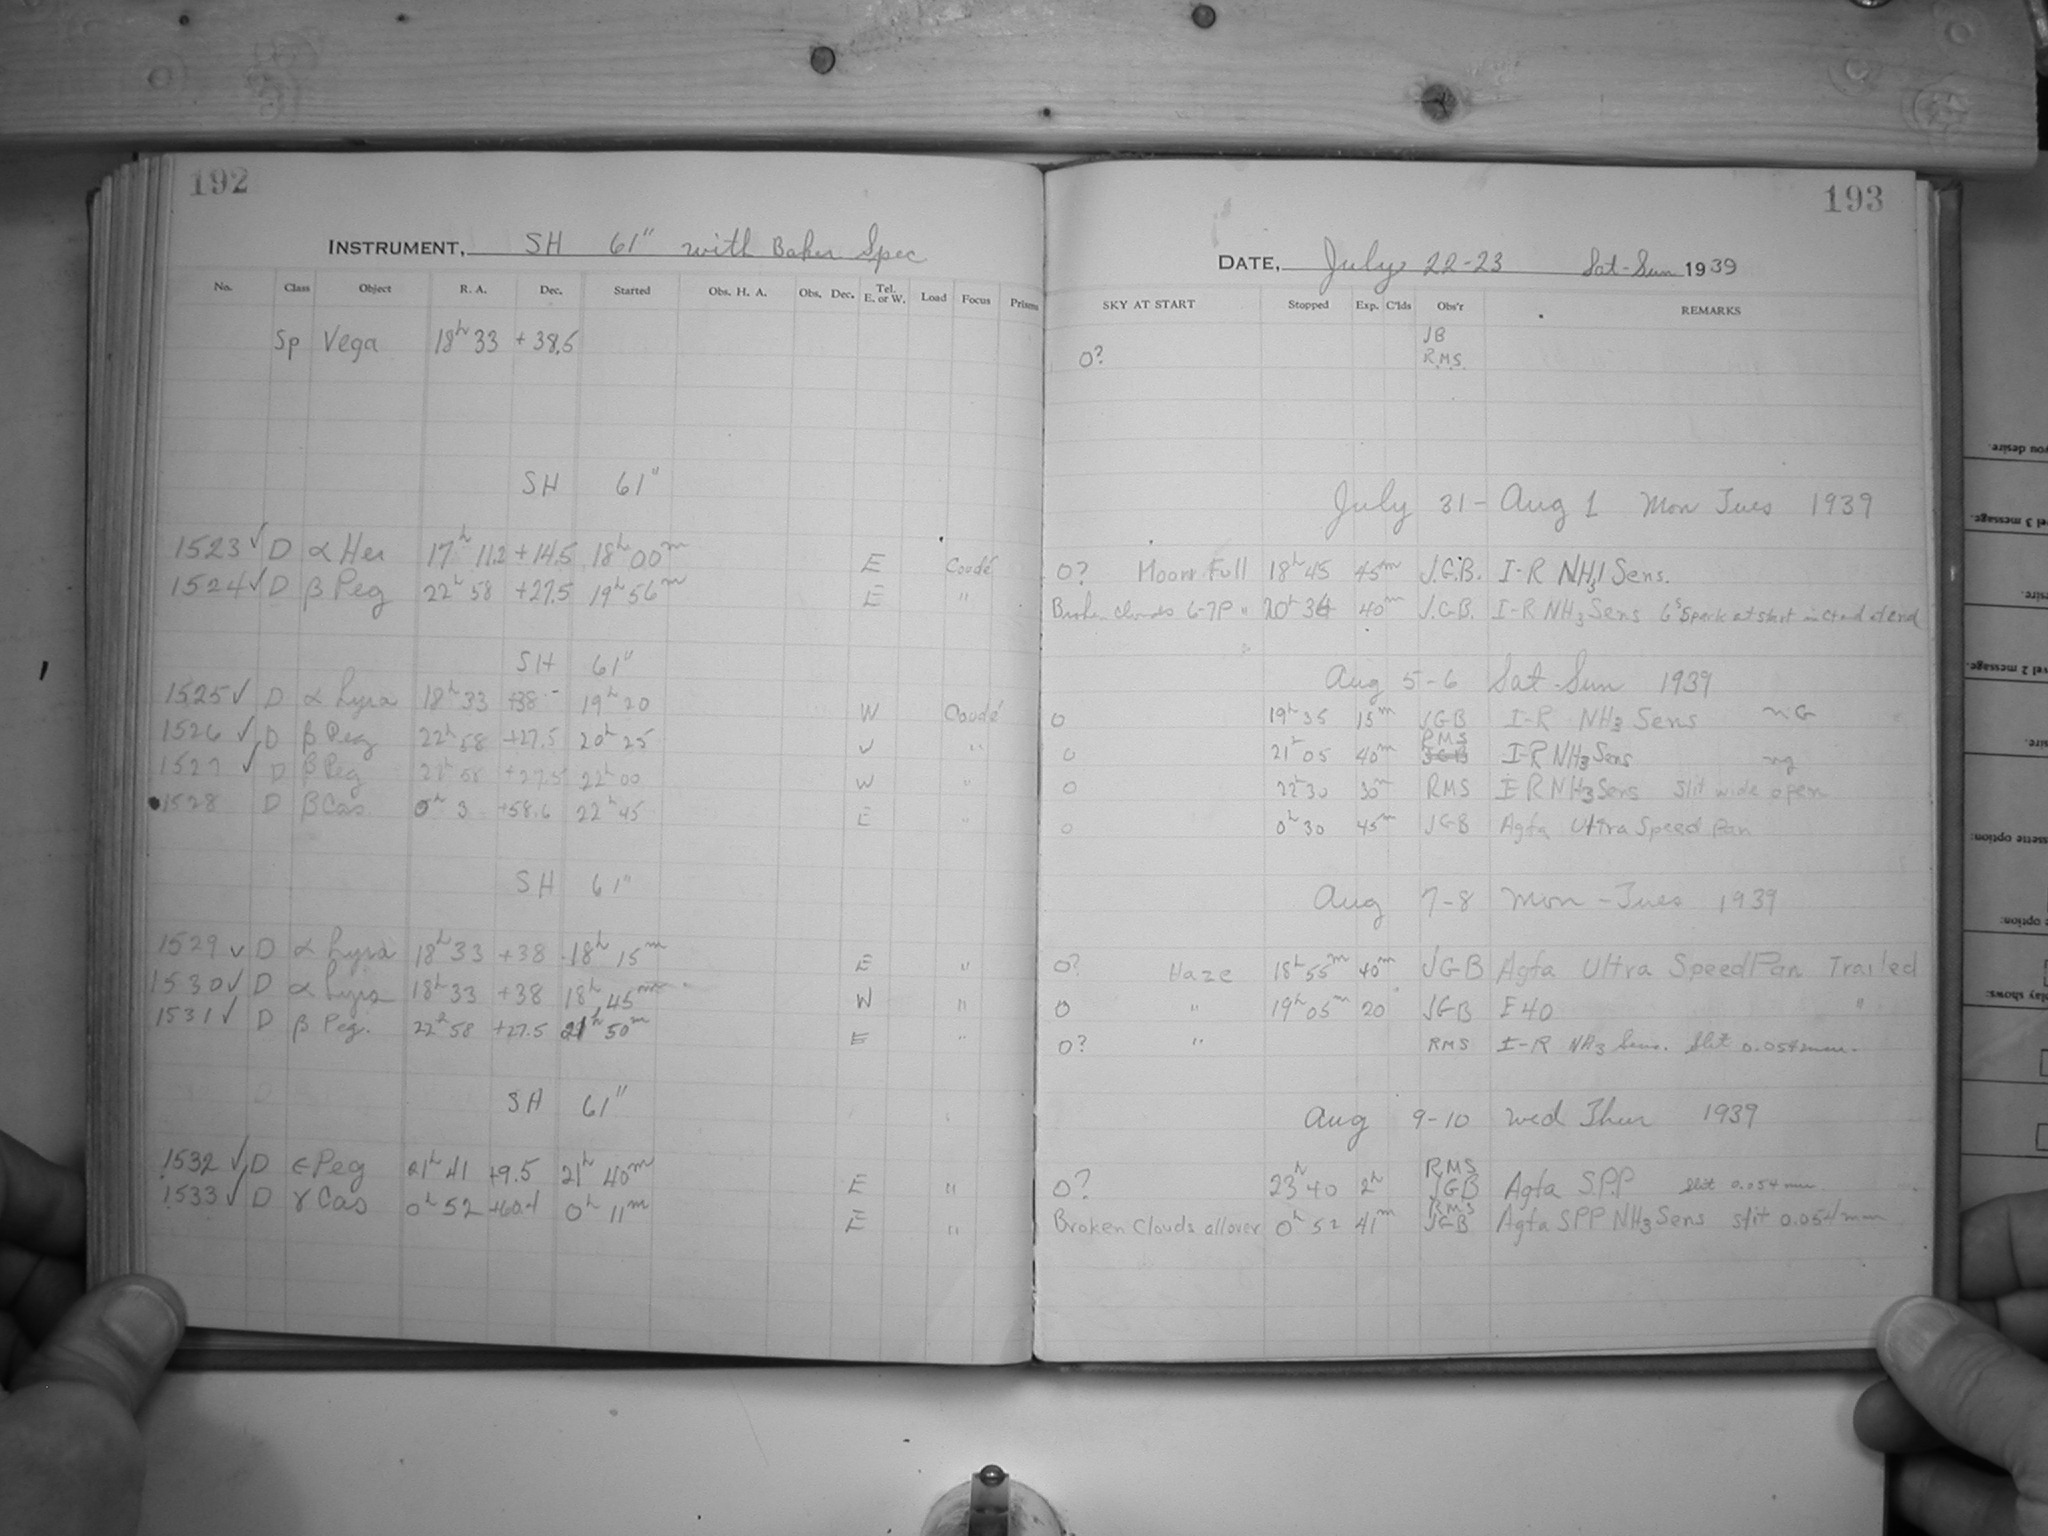 192
INSTRUMENT, SH 61" with Baker Spec
No. Class Object R. A. Dec. Started Obs. H. A. Obs. Dec. Tel. E. or W. Load Focus Prisms
Sp Vega 18h 33 + 38.5
SH 61"
1523 ✓ D α Her 17h 11.2 +14.5 18h 00m E Coudé
1524 ✓ D β Peg 22h 58 +27.5 19h 56m E "
SH 61"
1525 ✓ D α Lyra 18h 33 +38 19h 20 W Coudé
1526 ✓ D β Peg 22h 58 +27.5 20h 25 W "
1527 ✓ D β Peg 22h 58 +27.5 22h 00 W "
1528 D β Cas. 0h 3 +58.6 22h 45 E "
SH 61"
1529 ✓ D α Lyra 18h 33 +38 18h 15m E "
1530 ✓ D α Lyra 18h 33 +38 18h 45m W "
1531 ✓ D β Peg. 22h 58 +27.5 21h 50m E "
SH 61"
1532 ✓ D ε Peg 21h 41 +9.5 21h 40m E "
1533 ✓ D γ Cas 0h 52 +60.4 0h 11m E "
193
DATE, July 22-23 Sat-Sun 1939
SKY AT START Stopped Exp. C'lds Obs'r REMARKS
JB
O? R.M.S.
July 31 - Aug 1 Mon Tues 1939
O? Moon Full 18h 45 45m J.G.B. I-R NH3 Sens.
Broken clouds 6-7P " 20h 36 40m J.G.B. I-R NH3 Sens 6s Spark at start and end
Aug 5-6 Sat-Sun 1939
O 19h 35 15m JGB I-R NH3 Sens nG
O 21h 05 40m RMS JGB I-R NH3 Sens ng
O 22h 30 30m RMS I-R NH3 Sens slit wide open
O 0h 30 45m JGB Agfa Ultra Speed Pan
Aug 7-8 Mon-Tues 1939
O? Haze 18h 55m 40m JGB Agfa Ultra Speed Pan Trailed
O " 19h 05m 20 JGB I 40 "
O? " RMS I-R NH3 Sens. Slit 0.054mm.
Aug 9-10 Wed Thur 1939
O? 23h 40 2h RMS JGB Agfa SPP slit 0.054 mm
Broken Clouds all over 0h 52 41m RMS JGB Agfa SPP NH3 Sens slit 0.054 mm
you desire.
message.
level 2 message.